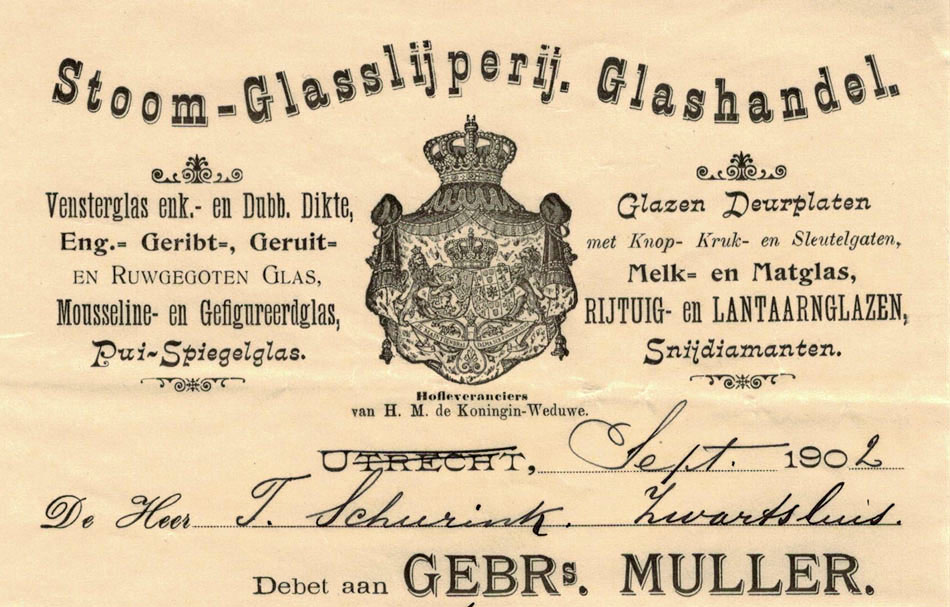 Stoom-Glasslijperij. Glashandel.
Vensterglas enk.- en Dubb. Dikte,
Eng.= Geribt=, Geruit=
EN RUWGEGOTEN GLAS,
Mousseline- en Gefigureerdglas,
Pui-Spiegelglas.
Glazen Deurplaten
met Knop- Kruk- en Sleutelgaten,
Melk= en Matglas,
RIJTUIG- en LANTAARNGLAZEN,
Snijdiamanten.
Hofleveranciers
van H. M. de Koningin-Weduwe.
UTRECHT, Sept. 1902
De Heer T. Schurink. Zwartsluis.
Debet aan GEBRs. MULLER.